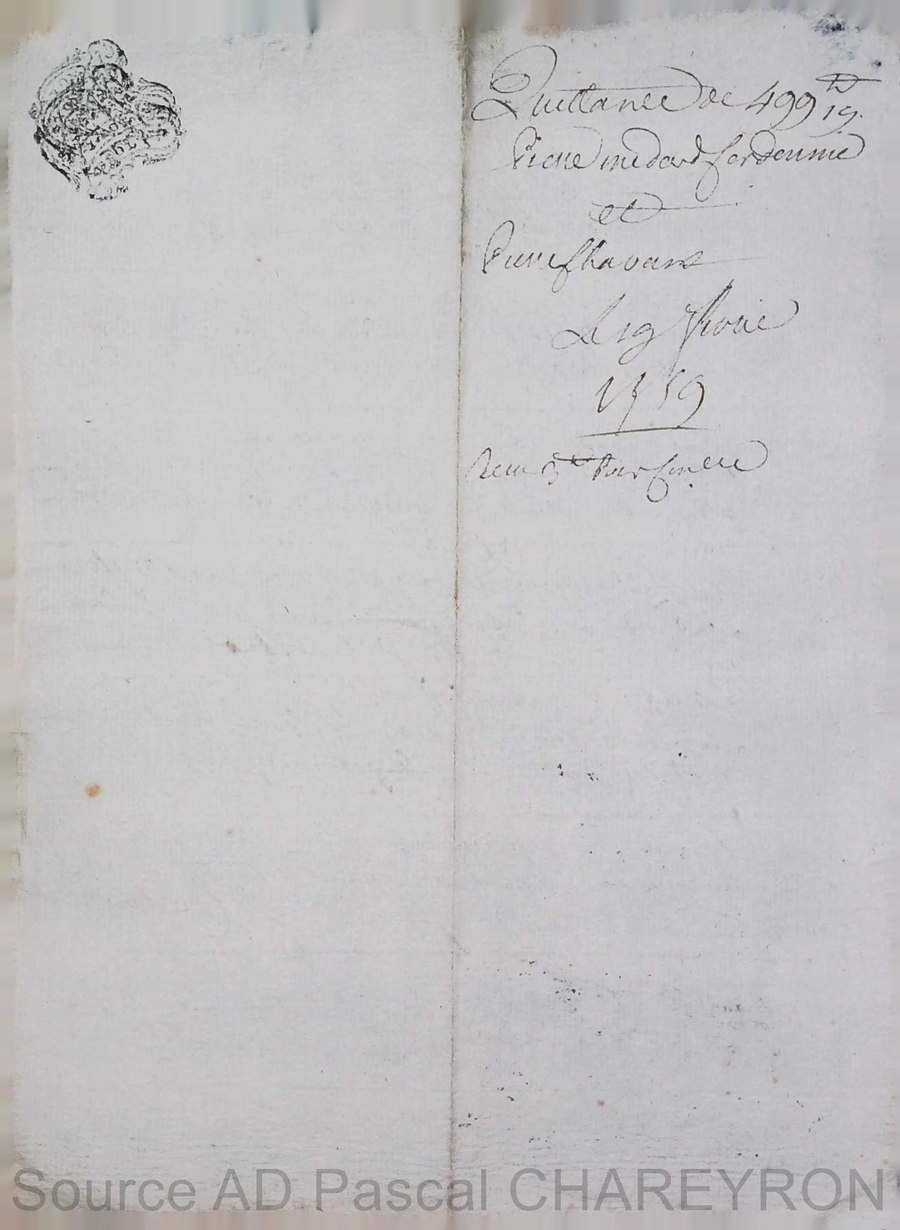 Quittance de 499 ₶ 19.
Pierre medard Cordonnie
et
Pierre Chavant
Le 19 fevrie
1759
Receu 3 ₶ Pour
Source AD Pascal CHAREYRON